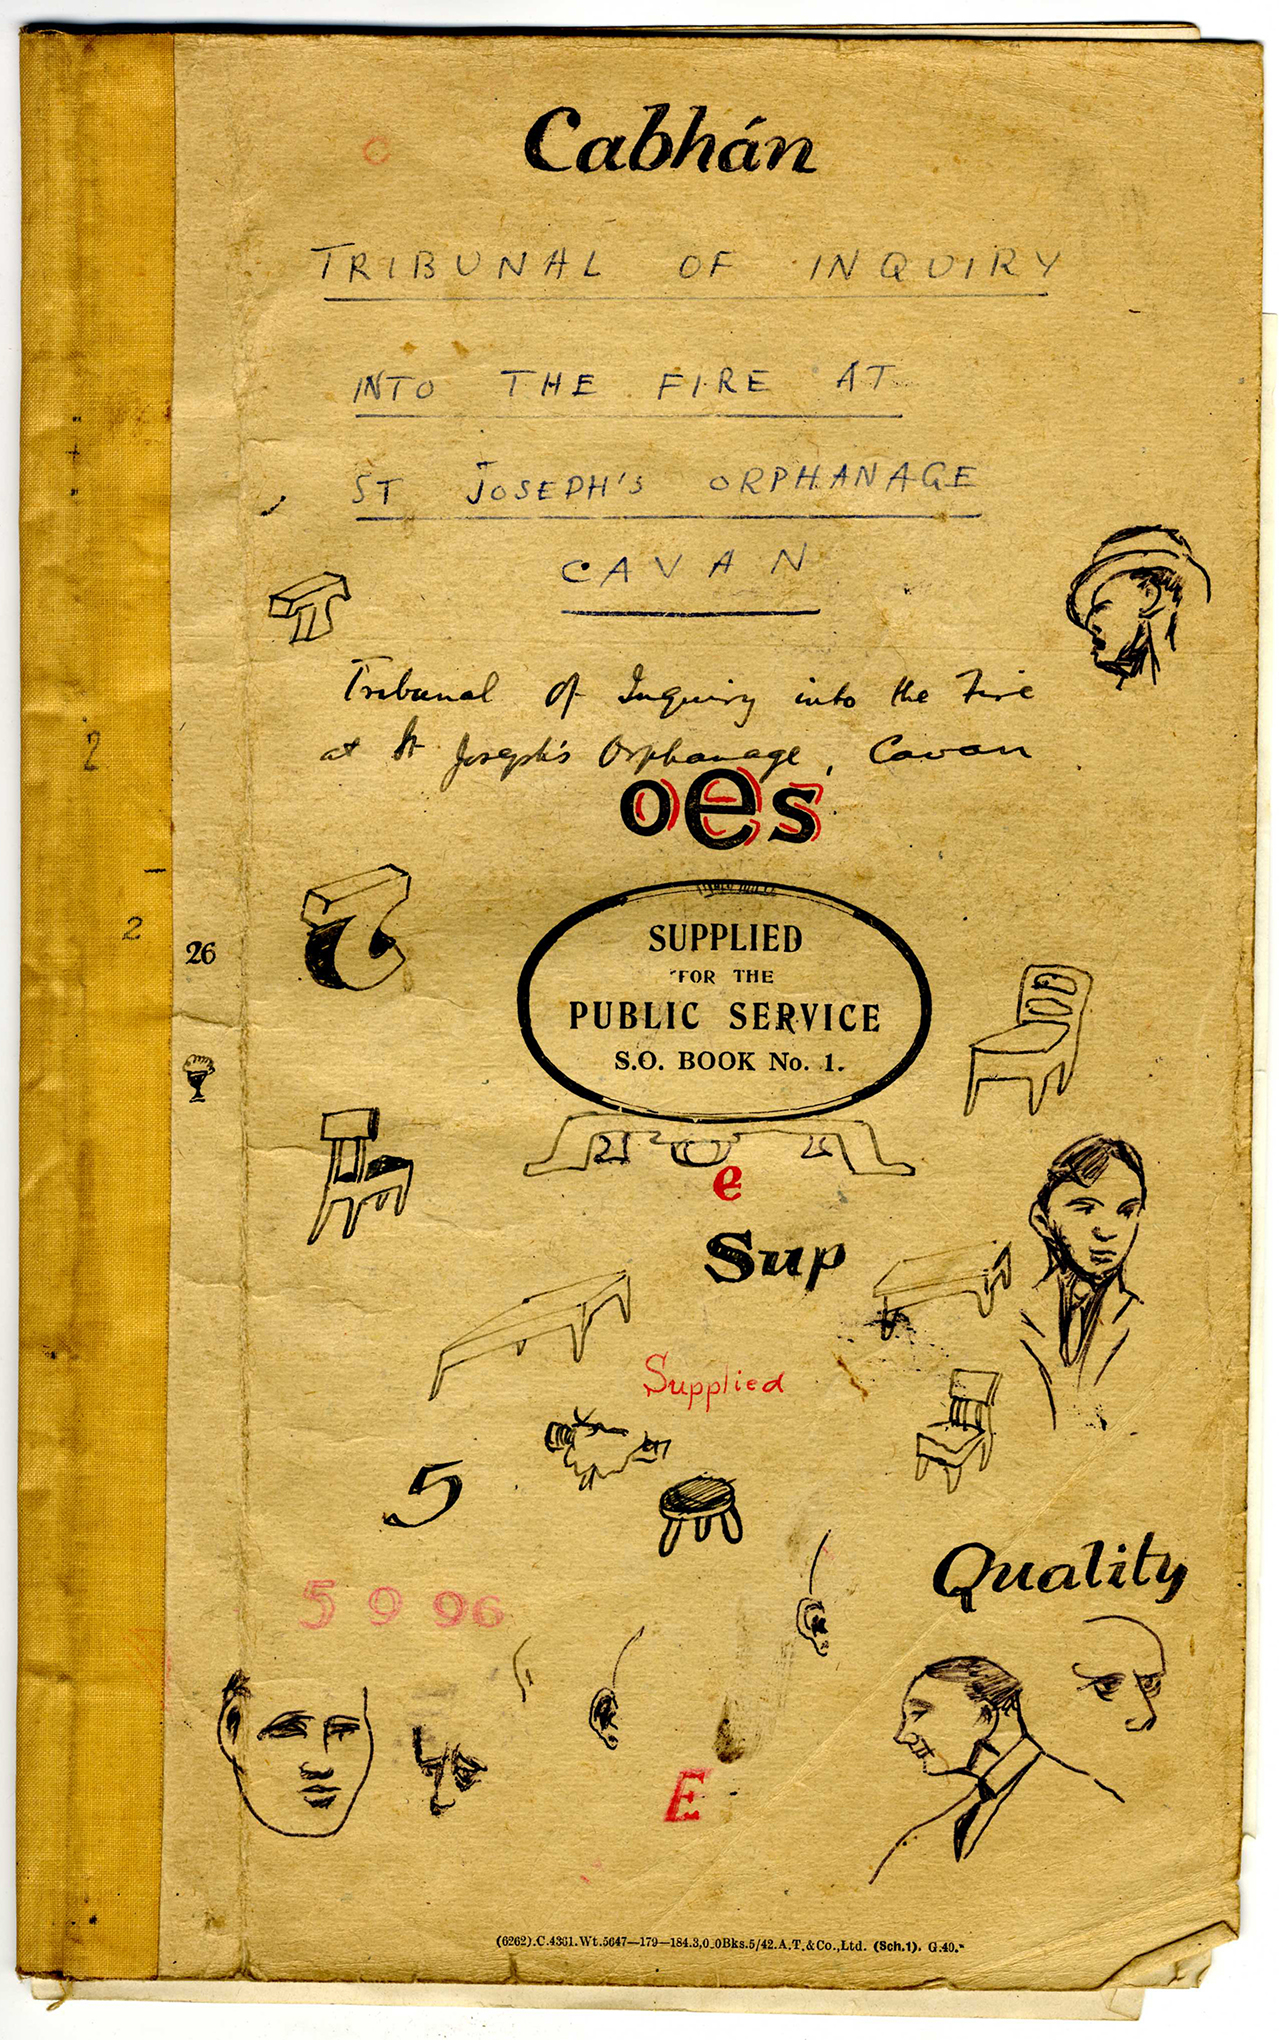 Cabhán
c
TRIBUNAL OF INQUIRY
INTO THE FIRE AT
ST JOSEPH'S ORPHANAGE
CAVAN
Tribunal of Inquiry into the Fire
at St Joseph's Orphanage, Cavan
oes
2
2
26
SUPPLIED
FOR THE
PUBLIC SERVICE
S.O. BOOK No. 1.
e
Sup
Supplied
5
Quality
5 9 96
E
(6262).C.4361.Wt.5647—179—184.3,0_0Bks.5/42.A.T.&Co.,Ltd. (Sch.1). G.40.